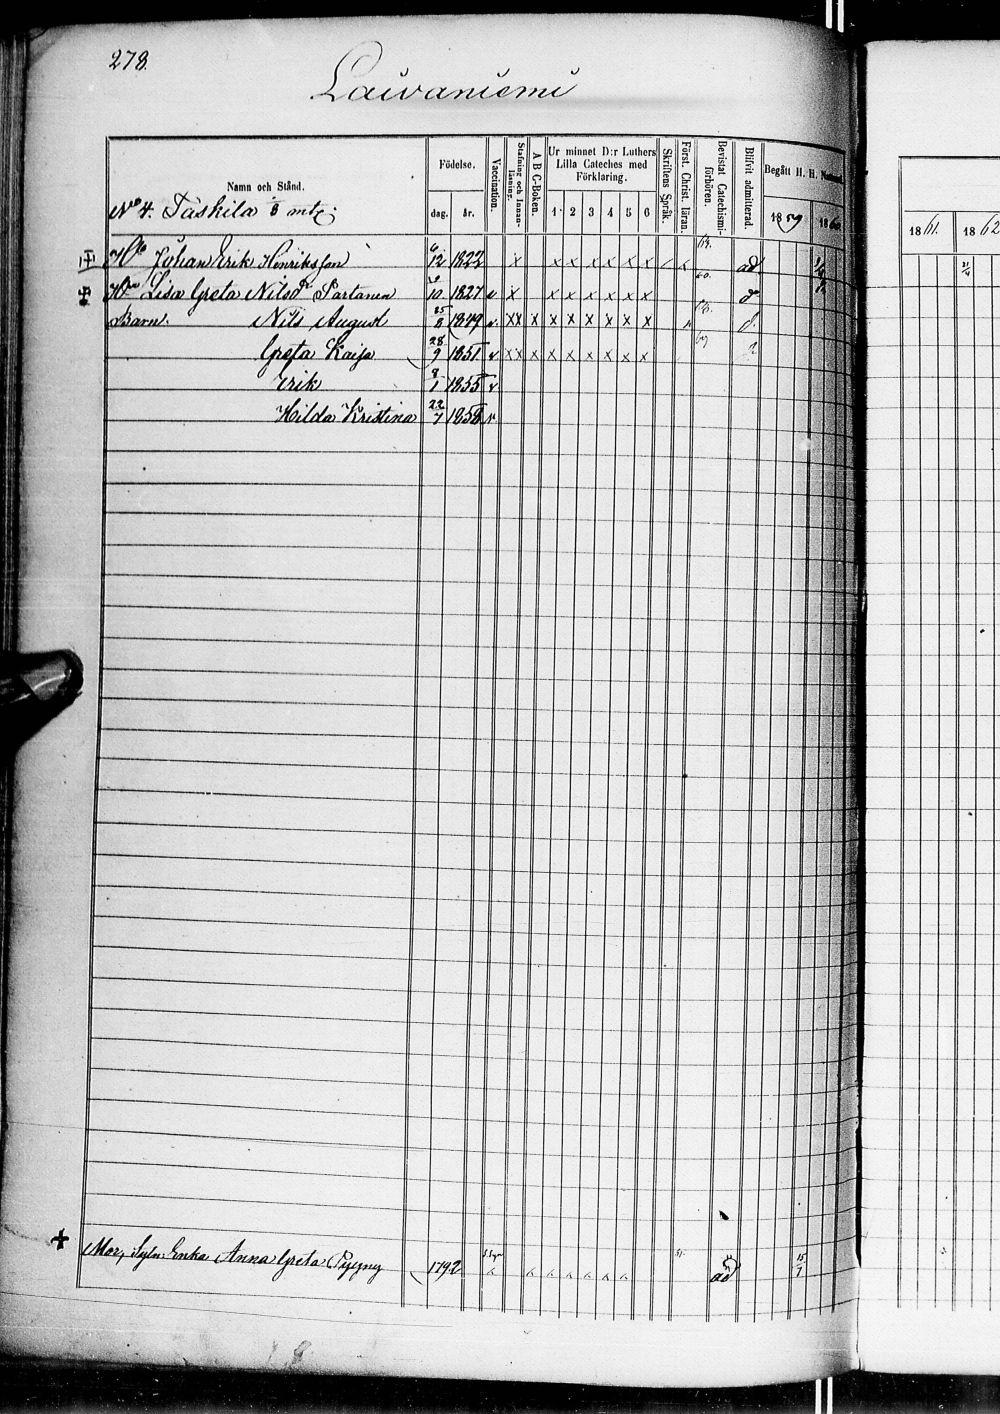 278.
Laivaniemi
Namn och Stånd.
Födelse.
dag. år.
Vaccination.
Stafning och Innanläsning.
A B C-Boken.
Ur minnet D:r Luthers Lilla Cateches med Förklaring.
1 2 3 4 5 6
Skriftens Språk.
Först. Christ. läran.
Bevistat Catechismiförhören.
Blifvit admitterad.
Begått H. H. Nattvard
1859 1860
1861. 1862
No 4. Täskilä mtl:
Johan Erik Henriksson 6/12 1822 x x x x x x x ad
Lisa Greta Nilsdr Partanen 10 1827 v x x x x x x x
Barn. Nils August 25/8 1849 v. x x x x x x x x x
Greta Kaisa 28/9 1851 v x x x x x x x x x
Erik 8/1 1855 v
Hilda Kristina 22/7 1858 v
Mor, Enka Anna Greta 1792 ad 15/7